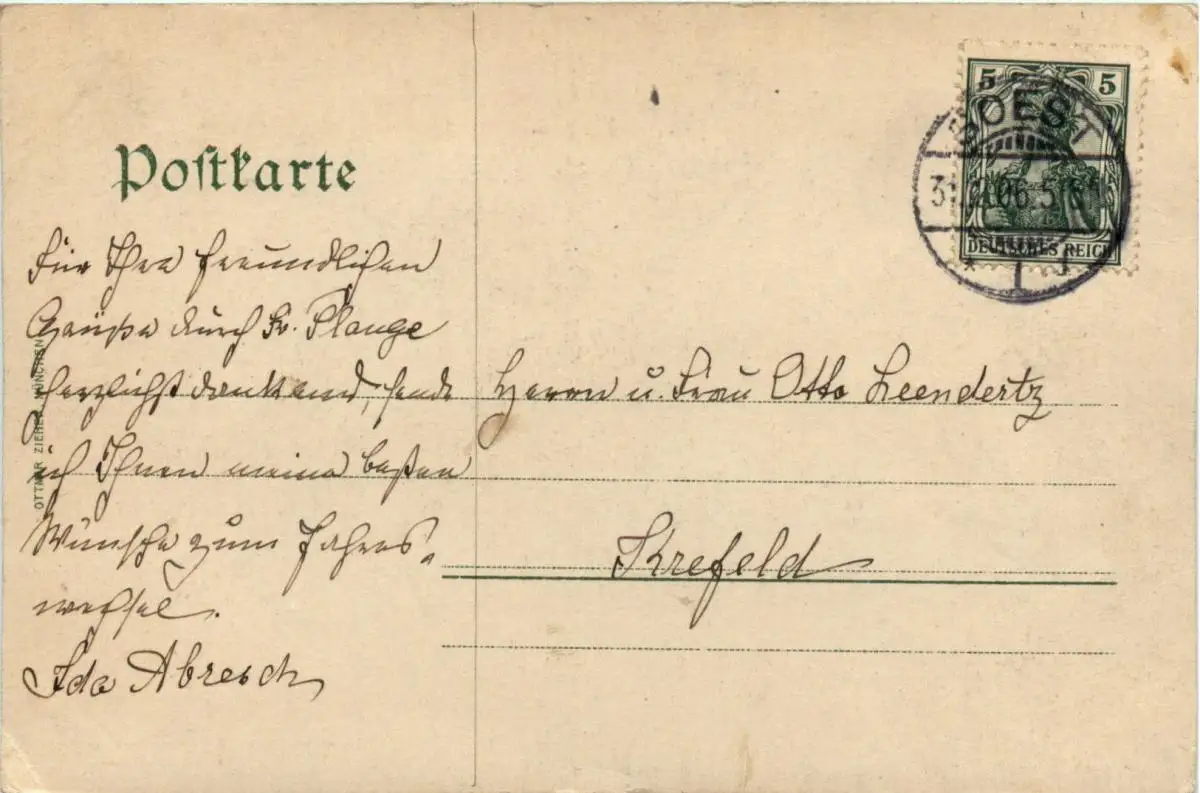 Postkarte
Für Ihre freundlichen
Grüße durch Fr. Plange
herzlichst dankend, sende
ich Ihnen meine besten
Wünsche zum Jahres-
wechsel.
Ida Abresch
OTTMAR ZIEHER, MÜNCHEN
5 5
DEUTSCHES REICH
SOEST
31.12.06. 5-6
Herrn u. Frau Otto Leendertz
Krefeld